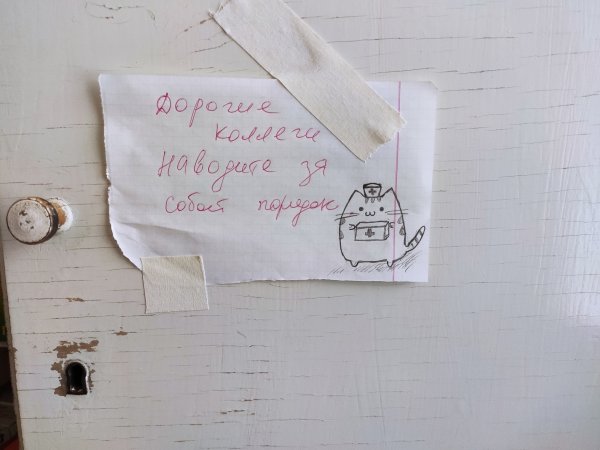 Дорогие
коллеги
Наводите за
собой порядок